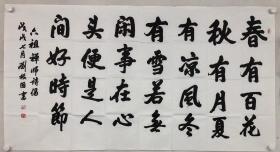 春有百花
秋有月夏
有涼風冬
有雪若無
閑事在心
頭便是人
間好時節
六祖禪師詩偈
戊戌七月劉振國書